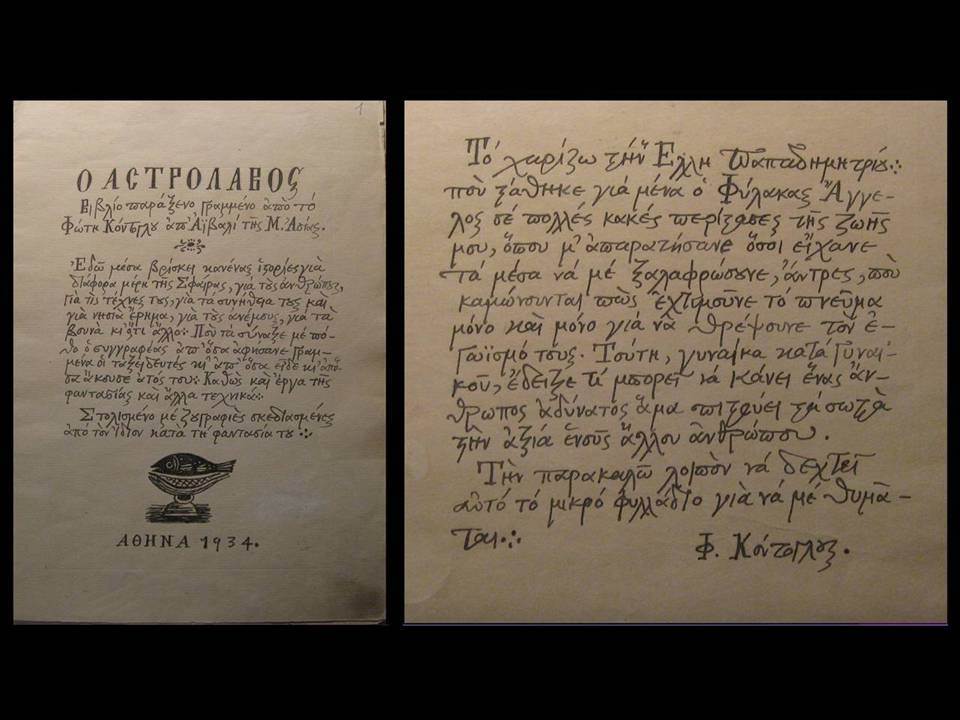 1
Ο ΑΣΤΡΟΛΑΒΟΣ
Βιβλίο παράξενο γραμμένο ἀπὸ τὸ
Φώτη Κόντογλου ἀπ' Ἀϊβαλὶ τῆς Μ. Ἀσίας.
Ἐδῶ μέσα βρίσκει κανένας ἱστορίες γιὰ
διάφορα μέρη τῆς Σφαίρας, γιὰ τοὺς ἀνθρώπους,
γιὰ τὶς τέχνες τους, γιὰ τὰ συνήθεια τους καὶ
γιὰ νησιὰ ἔρημα, γιὰ τοὺς ἀνέμους, γιὰ τὰ
βουνὰ κι' ὅτι ἄλλο⁘ Ποὺ τὰ σύναξε μὲ πό-
θο ὁ συγγραφέας ἀπ' ὅσα ἀφήσανε γραμ-
μένα οἱ ταξειδευτὲς κι' ἀπ' ὅσα εἶδε κι' ἀπ' ὅ-
σα ἄκουσε ἀτός του⁘ Καθὼς καὶ ἔργα τῆς
φαντασίας καὶ ἄλλα τεχνικά⁘
Στολισμένο μὲ ζωγραφιὲς σκεδιασμένες
ἀπὸ τὸν ἴδιον κατὰ τὴ φαντασία του⁘
ΑΘΗΝΑ 1934.
Τό χαρίζω τῆς Ἕλλη Παπαδημητρίου⁘
ποὺ στάθηκε γιά μένα ὁ Φύλακας Ἄγγε-
λος σέ πολλές κακές περίστασες τῆς ζωῆς
μου, ὅπου μ' ἀπαρατήσανε ὅσοι εἴχανε
τά μέσα νά μέ ξαλαφρώσουνε, ἄντρες, ποὺ
καμώνουνται πὼς ἐχτιμοῦνε τό πνεῦμα
μόνο καὶ μόνο γιά νὰ θρέψουνε τὸν ἐ-
γωϊσμό τους. Τούτη, γυναίκα κατά γυναι-
κοῦ, ἔδειξε τί μπορεῖ νά κάνει ἕνας ἄν-
θρωπος ἀδύνατος ἅμα πιστεύει στά σωστὰ
στὴν ἀξία ἑνοῦς ἄλλου ἀνθρώπου.
Τὴν παρακαλῶ λοιπὸν νά δεχτεῖ
αὐτό τό μικρό φυλλάδιο γιὰ νά μέ θυμᾶ-
ται⁘
Φ. Κόντογλους.